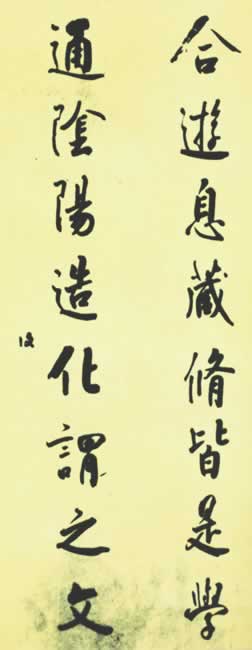 合遊息藏脩皆是學
通陰陽造化謂之文